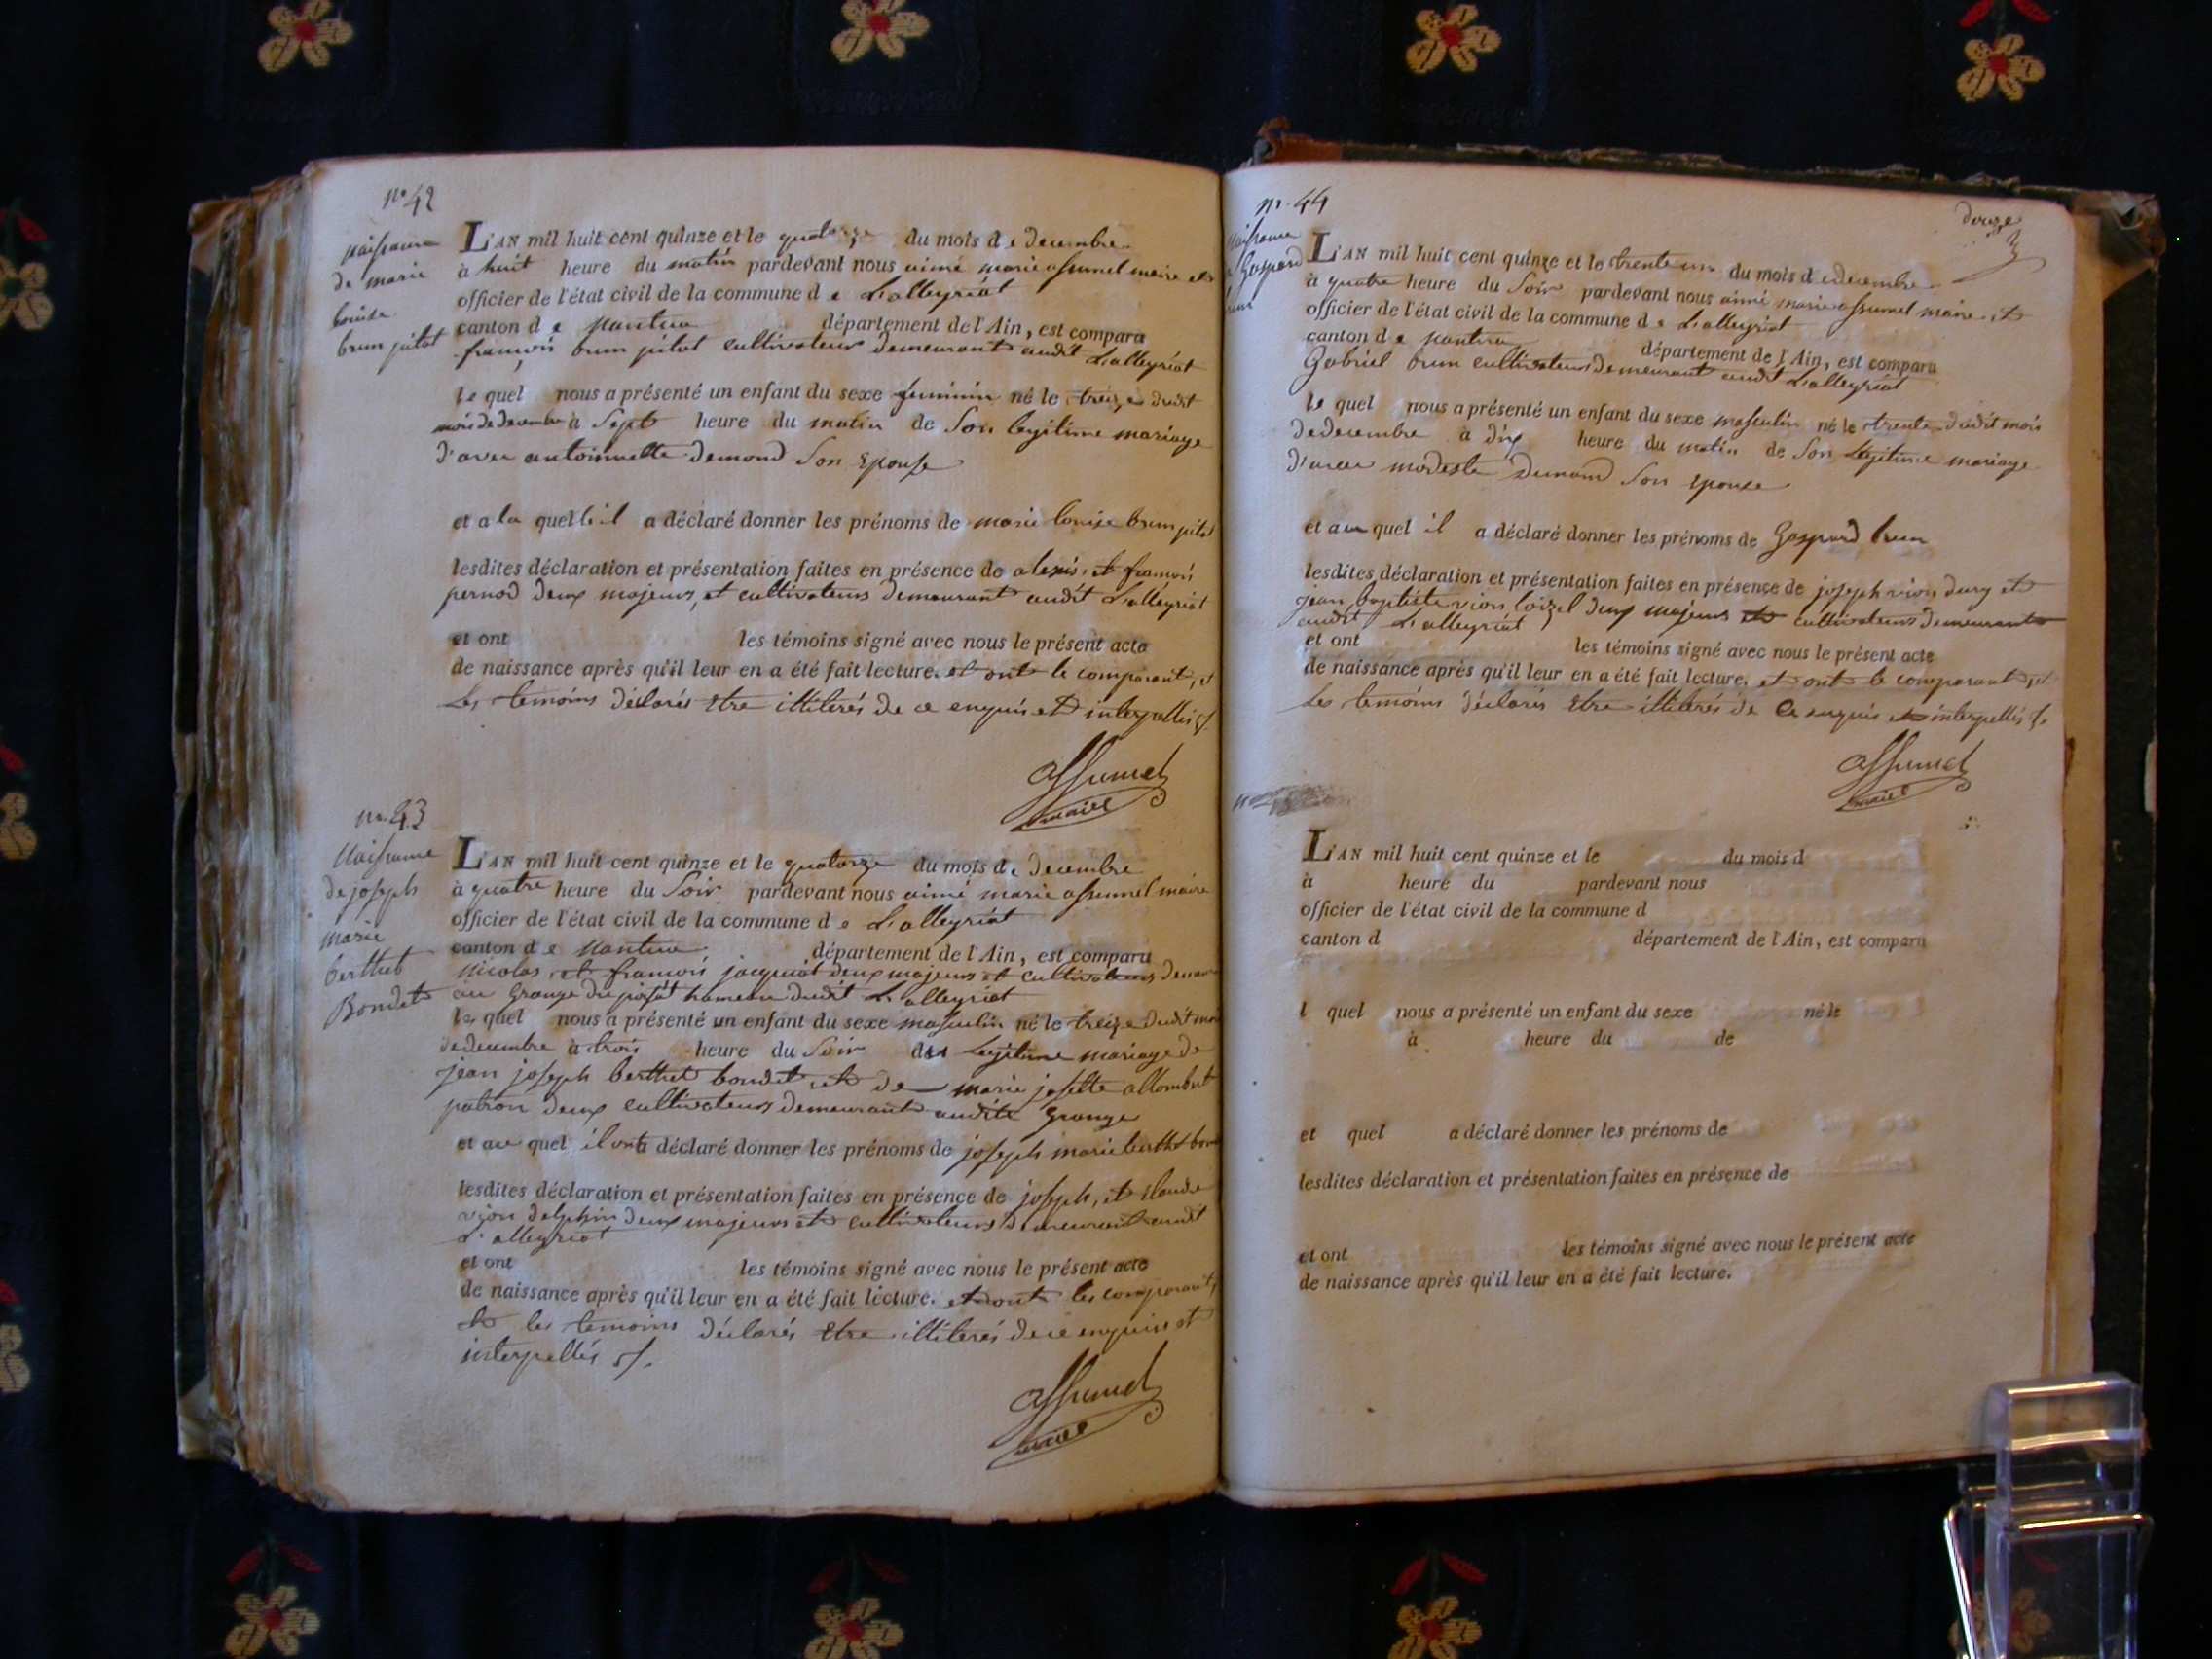 n° 42
naissance
de marie
louise
brun pitot
L'AN mil huit cent quinze et le quatorze du mois de decembre
à huit heure du matin pardevant nous aimé marie assumel maire et
officier de l'état civil de la commune de L'alleyriat
canton de Nantua département de l'Ain, est comparu
françois brun pitot cultivateur demeurant audit L'alleyriat
le quel nous a présenté un enfant du sexe feminin né le treize dudit
mois de decembre à Sept heure du matin de Son legitime mariage
d'avec antoinette demond Son Epouse
et a la quelle il a déclaré donner les prénoms de marie louise brun pitot
lesdites déclaration et présentation faites en présence de alexis et françois
pernod deux majeurs, et cultivateurs demeurant audit L'alleyriat
et ont les témoins signé avec nous le présent acte
de naissance après qu'il leur en a été fait lecture. et ont le comparant, et
Les temoins déclarés Etre illiterés de ce enquis et interpellés
assumel
maire
n° 43
Naissance
de joseph
marie
berthet
Bondet
L'AN mil huit cent quinze et le quatorze du mois de decembre
à quatre heure du Soir pardevant nous aimé marie assumel maire
officier de l'état civil de la commune de L'alleyriat
canton de Nantua département de l'Ain, est comparu
nicolas et françois jacquiot deux majeurs et cultivateurs
au Grange du hameau dudit L'alleyriat
les quel nous a présenté un enfant du sexe masculin né le treize dudit mois
de decembre à trois heure du Soir des Legitime mariage de
jean joseph berthet bondet et de marie josette allombert
patron deux cultivateurs demeurant audite Grange
et au quel il ont déclaré donner les prénoms de joseph marie berthet
lesdites déclaration et présentation faites en présence de joseph, et claude
vion delphin deux majeurs et cultivateurs demeurant audit
L'alleyriat
et ont les témoins signé avec nous le présent acte
de naissance après qu'il leur en a été fait lecture. et ont les comparant,
et les temoins déclarés Etre illiterés de ce enquis et
interpellés
assumel
maire
n° 44
douze
Naissance
Gaspard
L'AN mil huit cent quinze et le trente un du mois de decembre
à quatre heure du Soir pardevant nous aimé marie assumel maire et
officier de l'état civil de la commune de L'alleyriat
canton de Nantua département de l'Ain, est comparu
Gabriel brun cultivateur demeurant audit L'alleyriat
le quel nous a présenté un enfant du sexe masculin né le trente dudit mois
de decembre à dix heure du matin de Son Legitime mariage
d'avec modeste Dunand Son Epouse
et au quel il a déclaré donner les prénoms de Gaspard brun
lesdites déclaration et présentation faites en présence de joseph vion dury et
jean baptiste vion loizel deux majeurs et cultivateurs demeurant
audit L'alleyriat
et ont les témoins signé avec nous le présent acte
de naissance après qu'il leur en a été fait lecture. et ont le comparant, et
Les temoins déclarés Etre illiterés de Ce enquis et interpellés
assumel
maire
L'AN mil huit cent quinze et le du mois d
à heure du pardevant nous
officier de l'état civil de la commune d
canton d département de l'Ain, est comparu
l quel nous a présenté un enfant du sexe né le
à heure du de
et quel a déclaré donner les prénoms de
lesdites déclaration et présentation faites en présence de
et ont les témoins signé avec nous le présent acte
de naissance après qu'il leur en a été fait lecture.